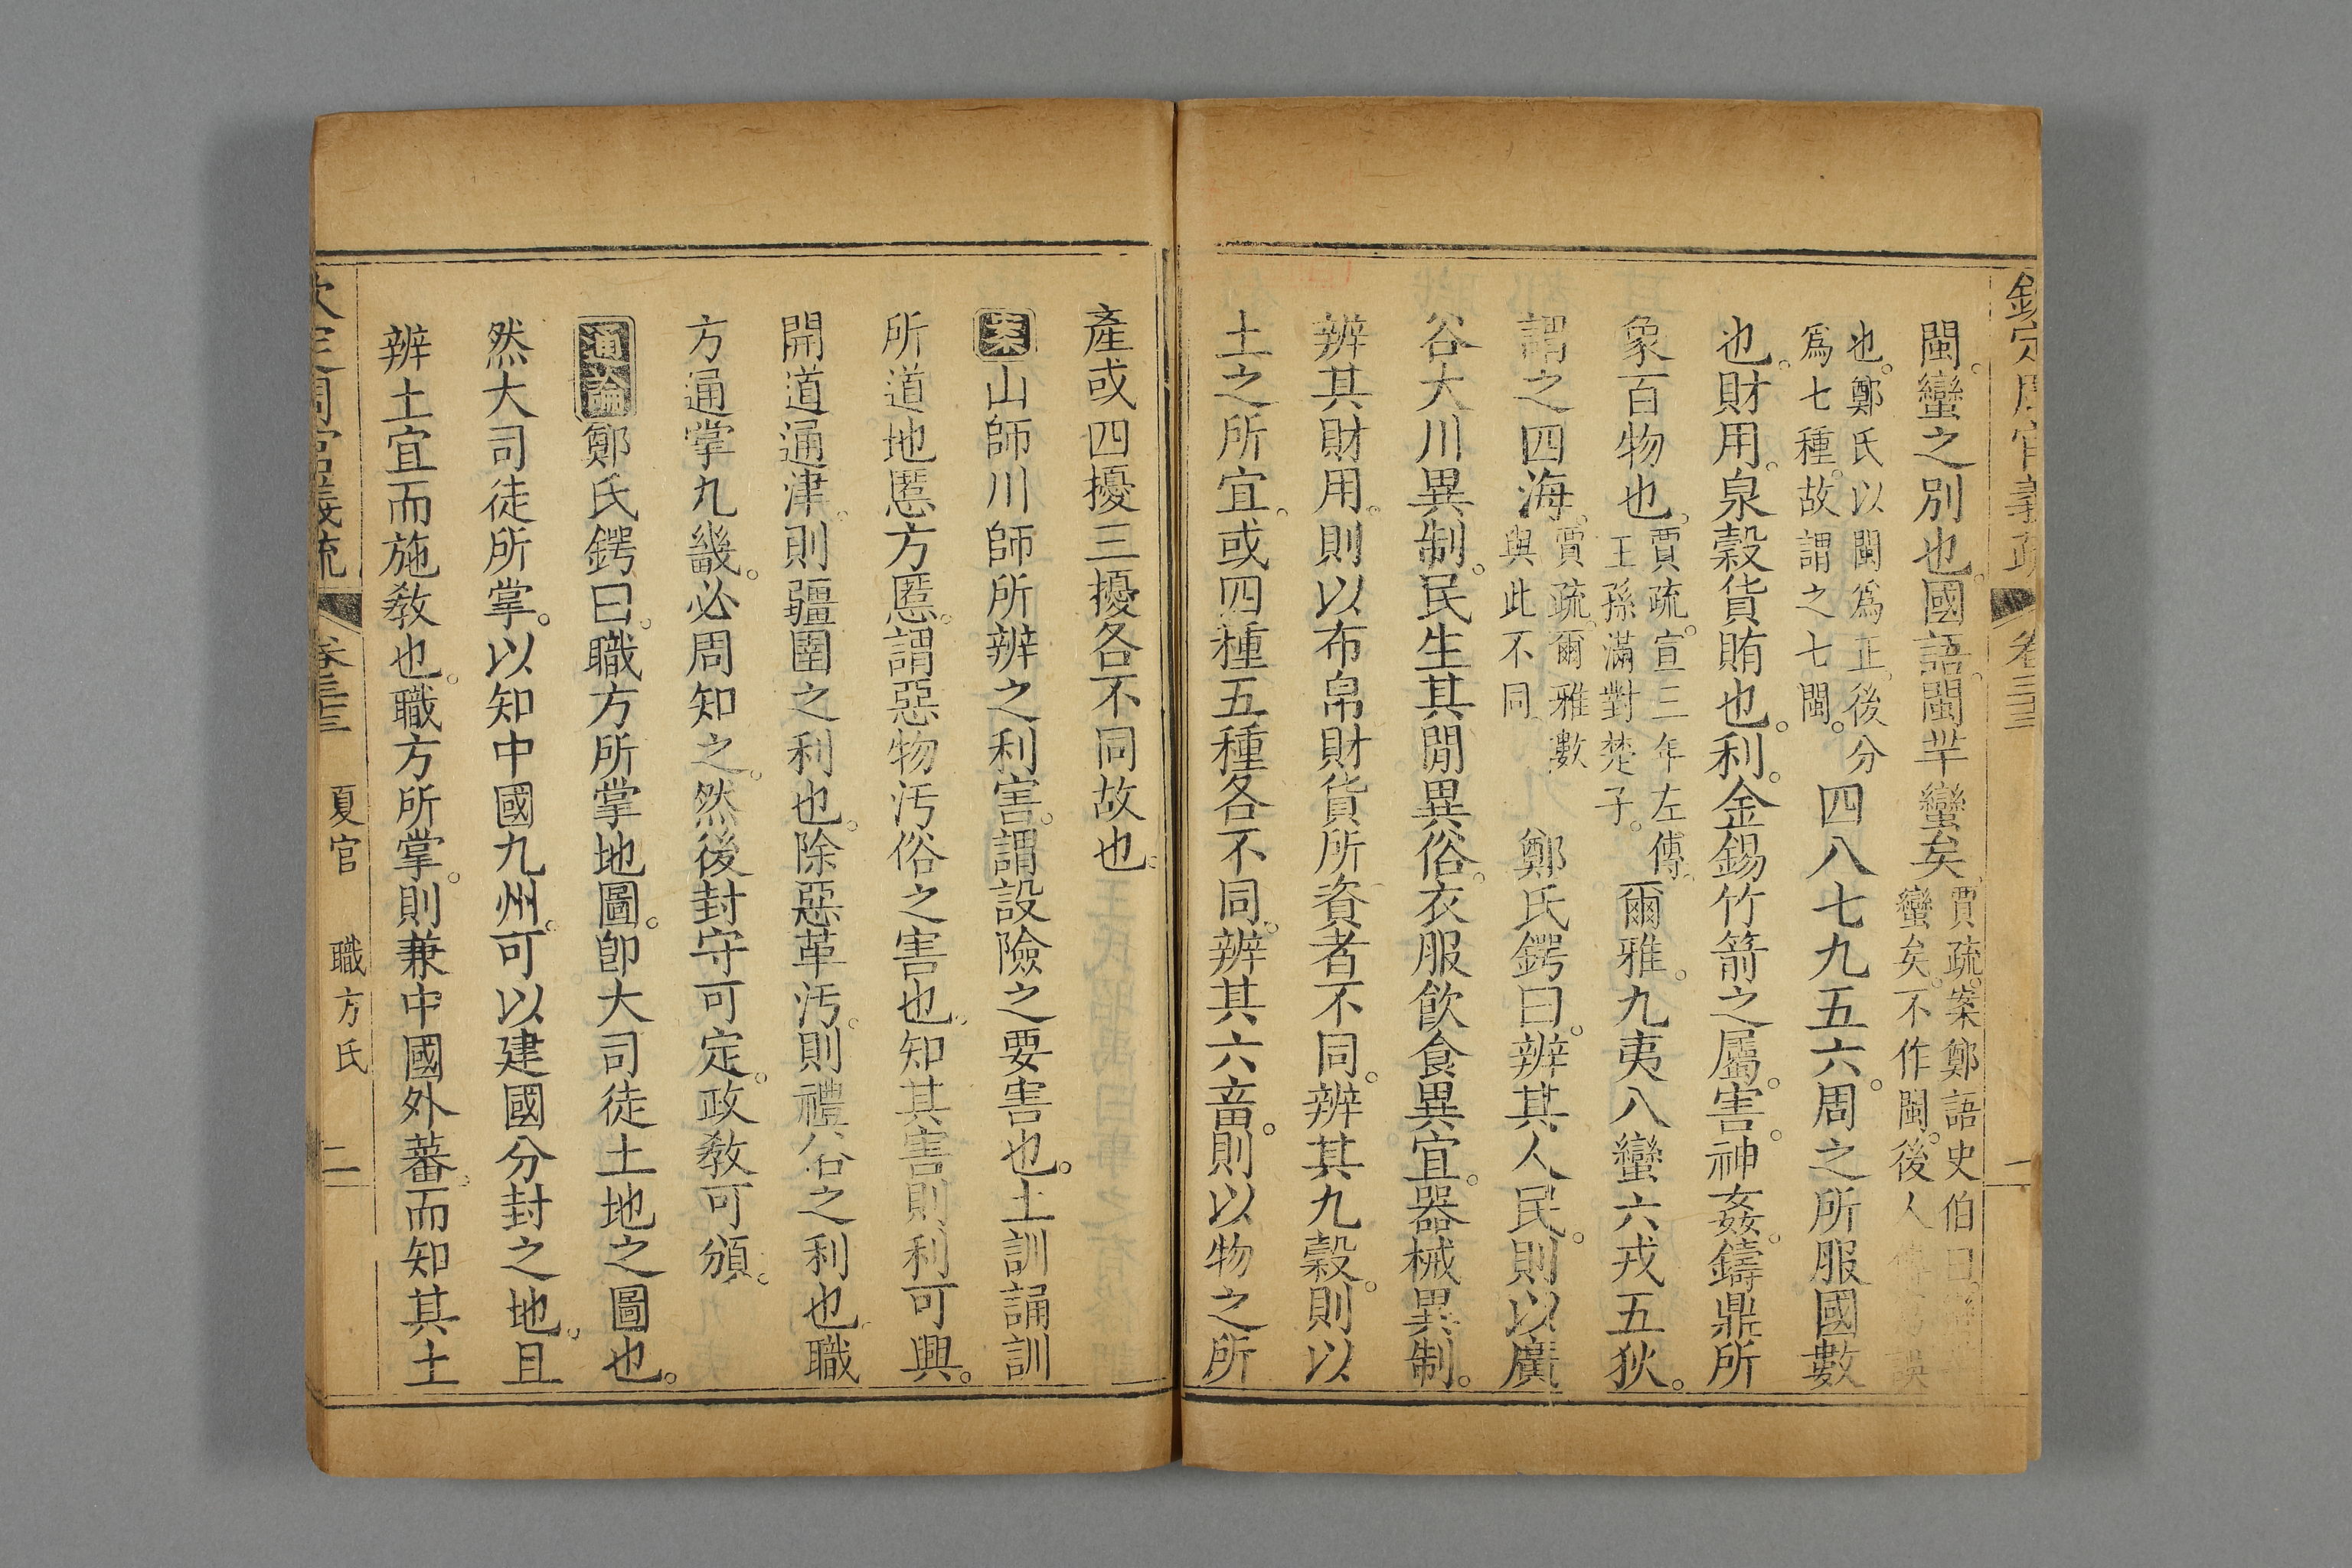 閩。蠻之別也。國語。閩羋蠻矣。賈疏。案鄭語史伯曰。
蠻矣。不作閩。後人誤
也。鄭氏以閩爲正。後分
爲七種。故謂之七閩。四八七九五六。周之所服國數
也。財用。泉穀貨賄也。利。金錫竹箭之屬。害。神姦。鑄鼎所
象百物也。賈疏。宣三年左傳。
王孫滿對楚子。爾雅。九夷八蠻六戎五狄。
謂之四海。賈疏。爾雅數
與此不同。鄭氏鍔曰。辨其人民。則以廣
谷大川異制。民生其閒異俗。衣服飲食異宜。器械異制。
辨其財用。則以布帛財貨所資者不同。辨其九穀。則以
土之所宜。或四種五種各不同。辨其六畜。則以物之所
產或四擾三擾各不同故也。
案山師川師所辨之利害。謂設險之要害也。土訓誦訓
所道地慝方慝。謂惡物汚俗之害也。知其害則利可興。
開道通津。則疆圉之利也。除惡革汚。則禮俗之利也。職
方通掌九畿。必周知之。然後封守可定。政敎可頒。
通論鄭氏鍔曰。職方所掌地圖。卽大司徒土地之圖也。
然大司徒所掌。以知中國九州。可以建國分封之地。且
辨土宜而施敎也。職方所掌。則兼中國外蕃。而知其土
欽定周官義疏 卷三十三 夏官 職方氏 二